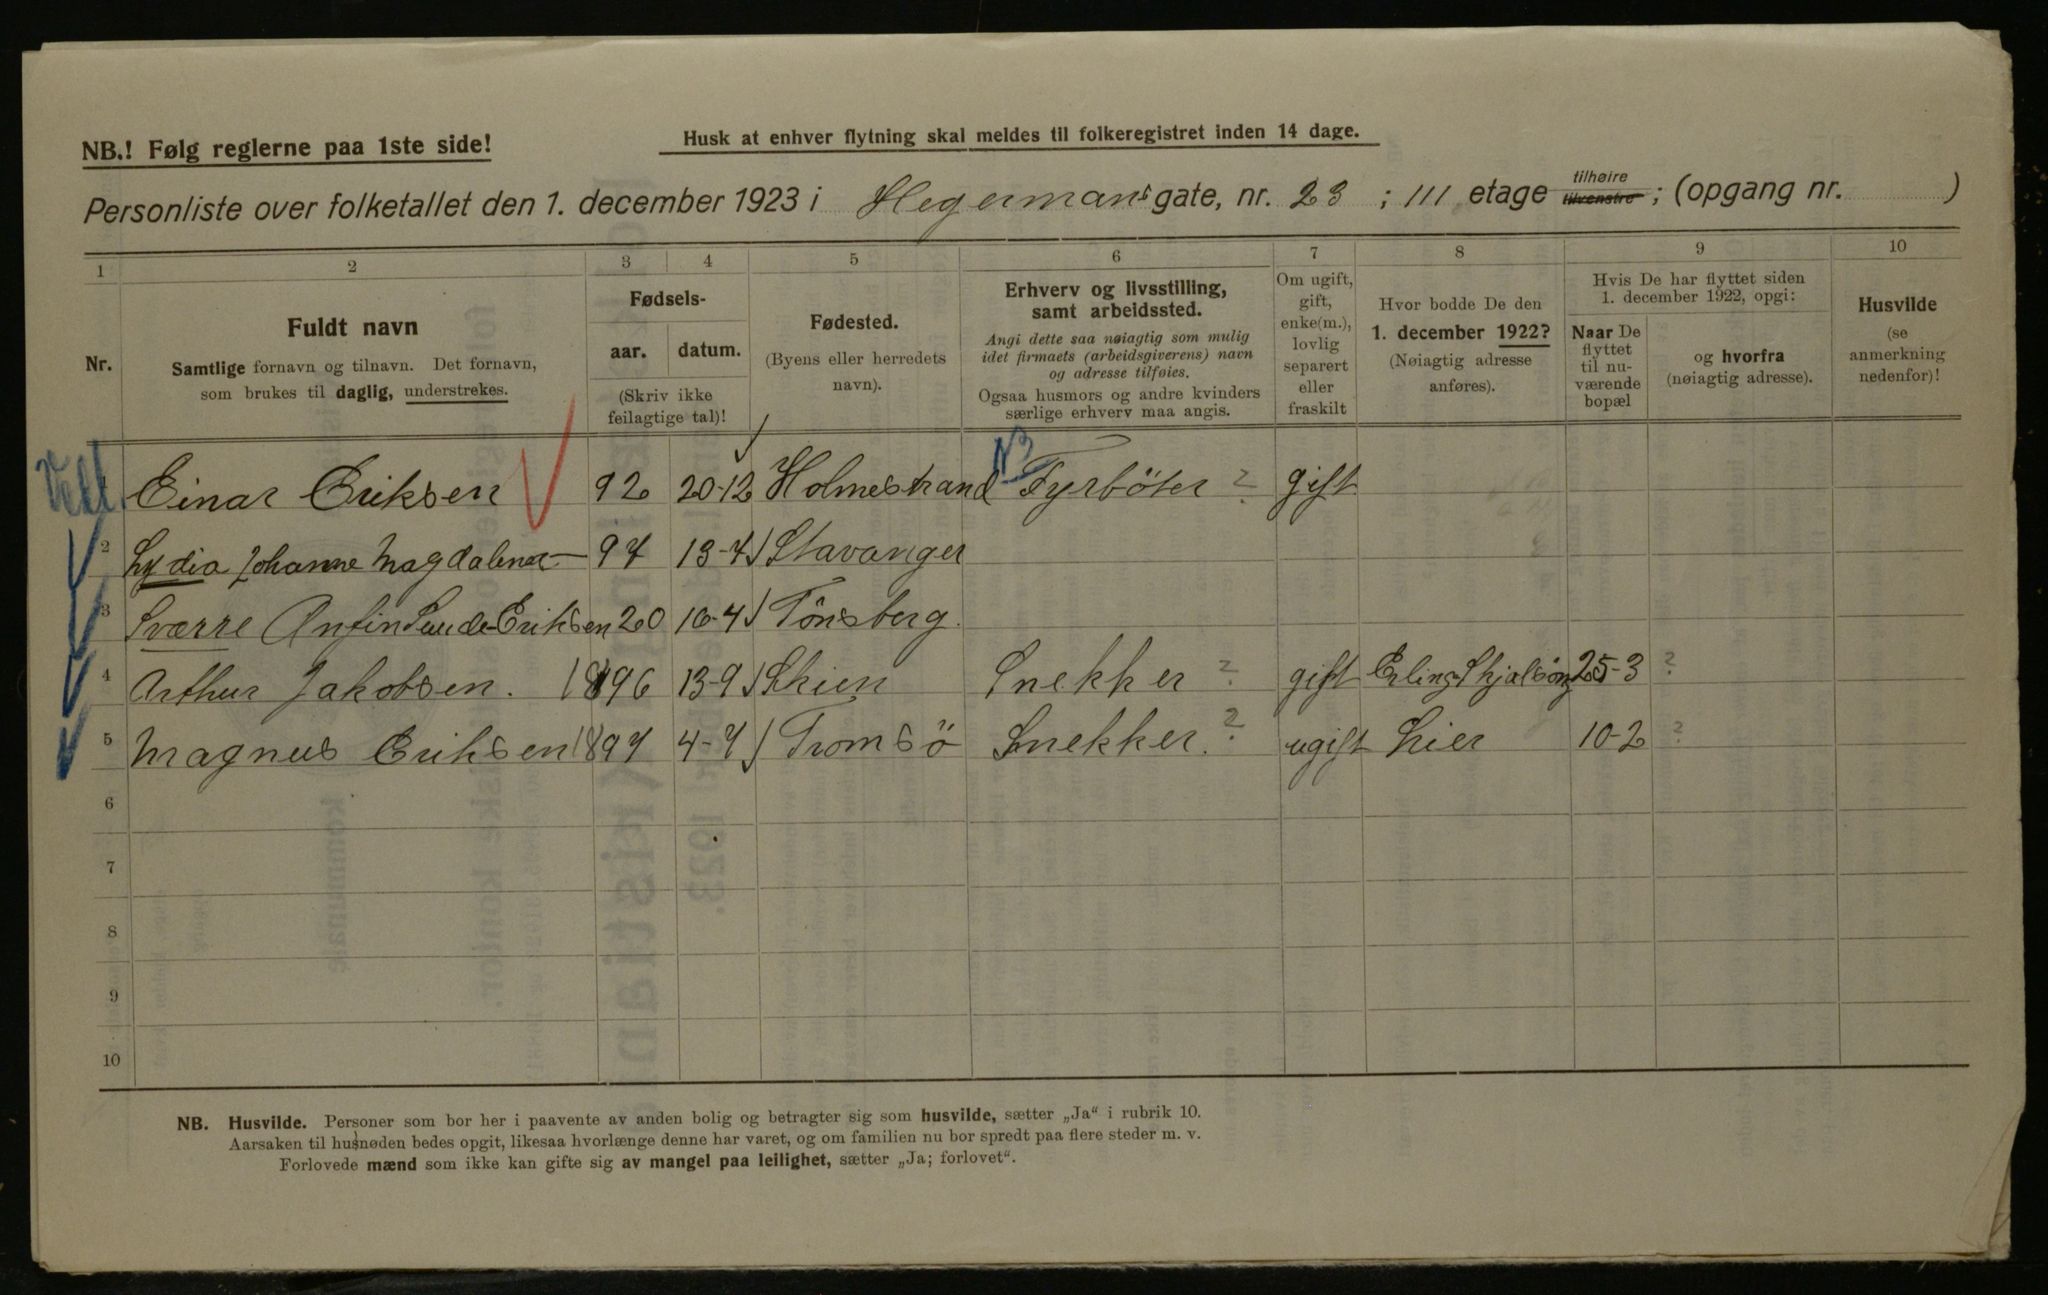 NB.! Følg reglerne paa 1ste side!
Husk at enhver flytning skal meldes til folkeregistret inden 14 dage.
Personliste over folketallet den 1. december 1923 i Hegermansgate, nr. 23; III etage tilhøire tilvenstre; (opgang nr. )
1 2 3 4 5 6 7 8 9 10
Nr.
Fuldt navn
Samtlige fornavn og tilnavn. Det fornavn,
som brukes til daglig, understrekes.
Fødsels-
aar. datum.
(Skriv ikke
feilagtige tal)!
Fødested.
(Byens eller herredets
navn).
Erhverv og livsstilling,
samt arbeidssted.
Angi dette saa nøiagtig som mulig
idet firmaets (arbeidsgiverens) navn
og adresse tilføies.
Ogsaa husmors og andre kvinders
særlige erhverv maa angis.
Om ugift,
gift,
enke(m.),
lovlig
separert
eller
fraskilt
Hvor bodde De den
1. december 1922?
(Nøiagtig adresse
anføres).
Hvis De har flyttet siden
1. december 1922, opgi:
Naar De
flyttet
til nu-
værende
bopæl
og hvorfra
(nøiagtig adresse).
Husvilde
(se
anmerkning
nedenfor)!
Einar Eriksen 92 20-12 Holmestrand NB Fyrböter ? gift
2 Lydia Johanne Magdalena — 97 13-7 Stavanger
3 Sværre Anfin Sunde Eriksen 20 16-4 Tönsberg.
4 Arthur Jakobsen. 1896 13-9 Skien Snekker ? gift Erling Skjalsöns 25-3 ?
5 Magnus Eriksen 1897 4-7 Tromsö Snekker. ? ugift Lier 10-2 ?
6
7
8
9
10
NB. Husvilde. Personer som bor her i paavente av anden bolig og betragter sig som husvilde, sætter „Ja“ i rubrik 10.
Aarsaken til husnøden bedes opgit, likesaa hvorlænge denne har varet, og om familien nu bor spredt paa flere steder m. v.
Forlovede mænd som ikke kan gifte sig av mangel paa leilighet, sætter „Ja; forlovet“.